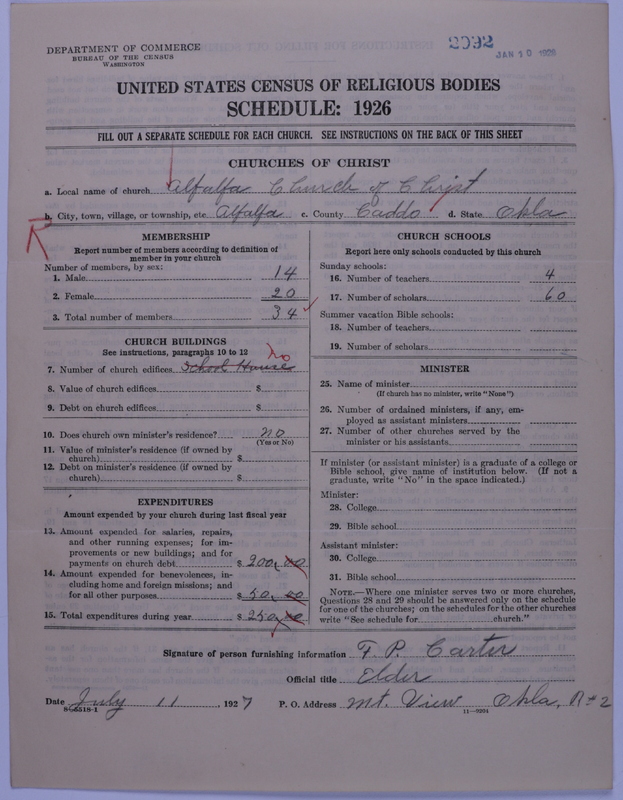 DEPARTMENT OF COMMERCE
BUREAU OF THE CENSUS
WASHINGTON
2092
JAN 10 1928
UNITED STATES CENSUS OF RELIGIOUS BODIES
SCHEDULE: 1926
FILL OUT A SEPARATE SCHEDULE FOR EACH CHURCH. SEE INSTRUCTIONS ON THE BACK OF THIS SHEET
CHURCHES OF CHRIST
a. Local name of church Alfalfa Church of Christ
b. City, town, village, or township, etc. Alfalfa c. County Caddo d. State Okla
MEMBERSHIP
Report number of members according to definition of
member in your church
Number of members, by sex:
1. Male 14
2. Female 20
3. Total number of members 34
CHURCH BUILDINGS
See instructions, paragraphs 10 to 12
no
7. Number of church edifices School House
8. Value of church edifices $
9. Debt on church edifices $
10. Does church own minister's residence? no
(Yes or No)
11. Value of minister's residence (if owned by
church) $
12. Debt on minister's residence (if owned by
church) $
EXPENDITURES
Amount expended by your church during last fiscal year
13. Amount expended for salaries, repairs,
and other running expenses; for im-
provements or new buildings; and for
payments on church debt $ 200.00
14. Amount expended for benevolences, in-
cluding home and foreign missions; and
for all other purposes $ 50.00
15. Total expenditures during year $ 250.00
CHURCH SCHOOLS
Report here only schools conducted by this church
Sunday schools:
16. Number of teachers 4
17. Number of scholars 60
Summer vacation Bible schools:
18. Number of teachers
19. Number of scholars
MINISTER
25. Name of minister
(If church has no minister, write "None")
26. Number of ordained ministers, if any, em-
ployed as assistant ministers
27. Number of other churches served by the
minister or his assistants
If minister (or assistant minister) is a graduate of a college or
Bible school, give name of institution below. (If not a
graduate, write "No" in the space indicated.)
Minister:
28. College
29. Bible school
Assistant minister:
30. College
31. Bible school
NOTE.—Where one minister serves two or more churches,
Questions 28 and 29 should be answered only on the schedule
for one of the churches; on the schedules for the other churches
write "See schedule for church."
Signature of person furnishing information F. P. Carter
Official title Elder
Date July 11, 1927 P. O. Address Mt. View Okla, R#2
8-5518-1
11-9204